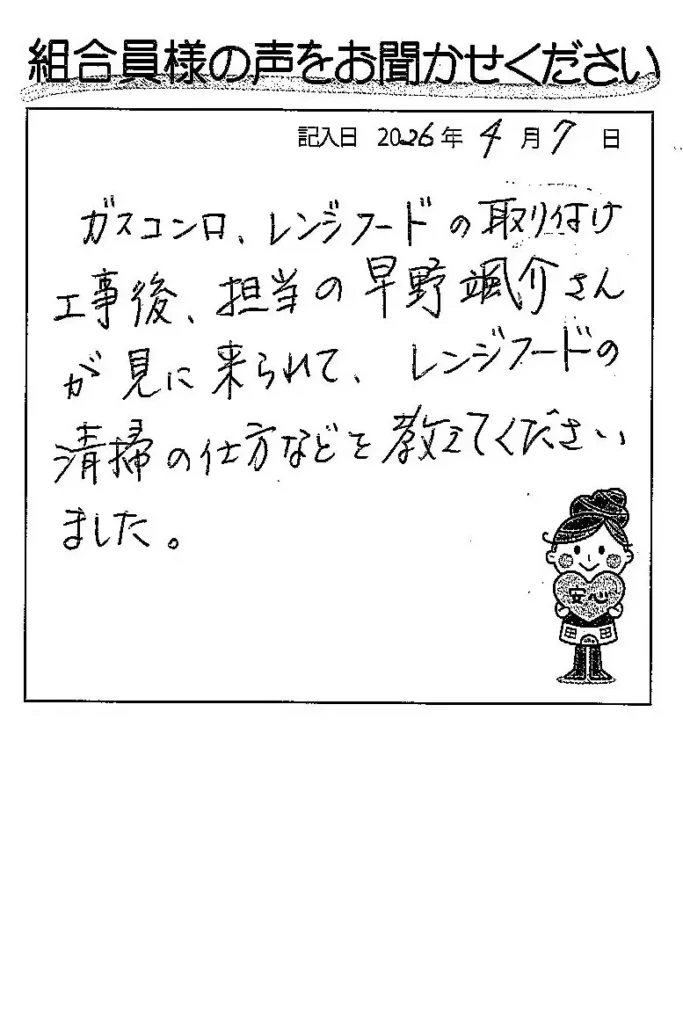 組合員様の声をお聞かせください
記入日 2026年 4月 7日
ガスコンロ、レンジフードの取り付け
工事後、担当の早野颯介さん
が見に来られて、レンジフードの
清掃の仕方などを教えてください
ました。
安心